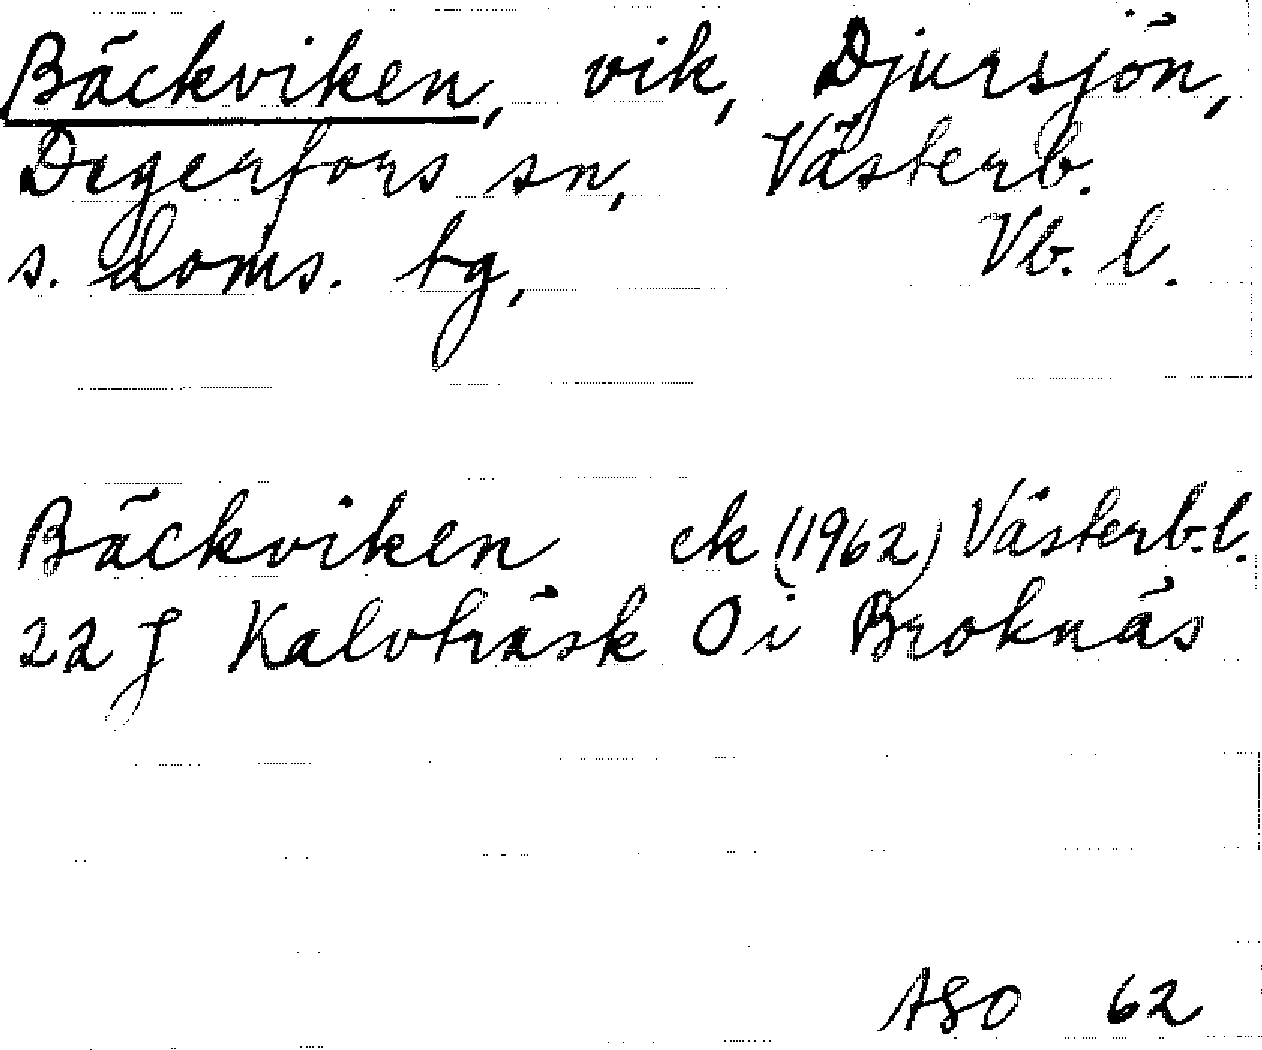 Bäckviken, vik, Djursjön,
Degerfors sn, Västerb.
s. doms. tg, Vb. l.
Bäckviken ek (1962) Västerb. l.
22 J Kalvträsk Ö i Broknäs
ASO 62